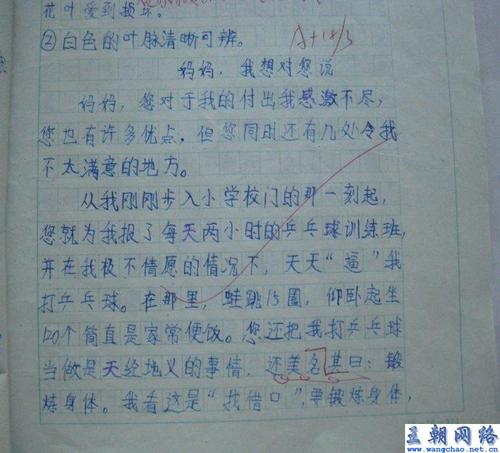 花叶受到损坏。
②白色的叶脉清晰可辨。
A+ 14/3
妈妈，我想对您说
妈妈，您对于我的付出我感激不尽，
您也有许多优点，但您同时还有几处令我
不太满意的地方。
从我刚刚步入小学校门的那一刻起，
您就为我报了每天两小时的乒乓球训练班，
并在我极不情愿的情况下，天天“逼”我
打乒乓球。在那里，蛙跳15圈，仰卧起坐
120个简直是家常便饭。您还把我打乒乓球
当做是天经地义的事情，还美名其曰：锻
炼身体。我看这是“找借口”，要锻炼身体，
王朝网络
www.wangchao.net.cn